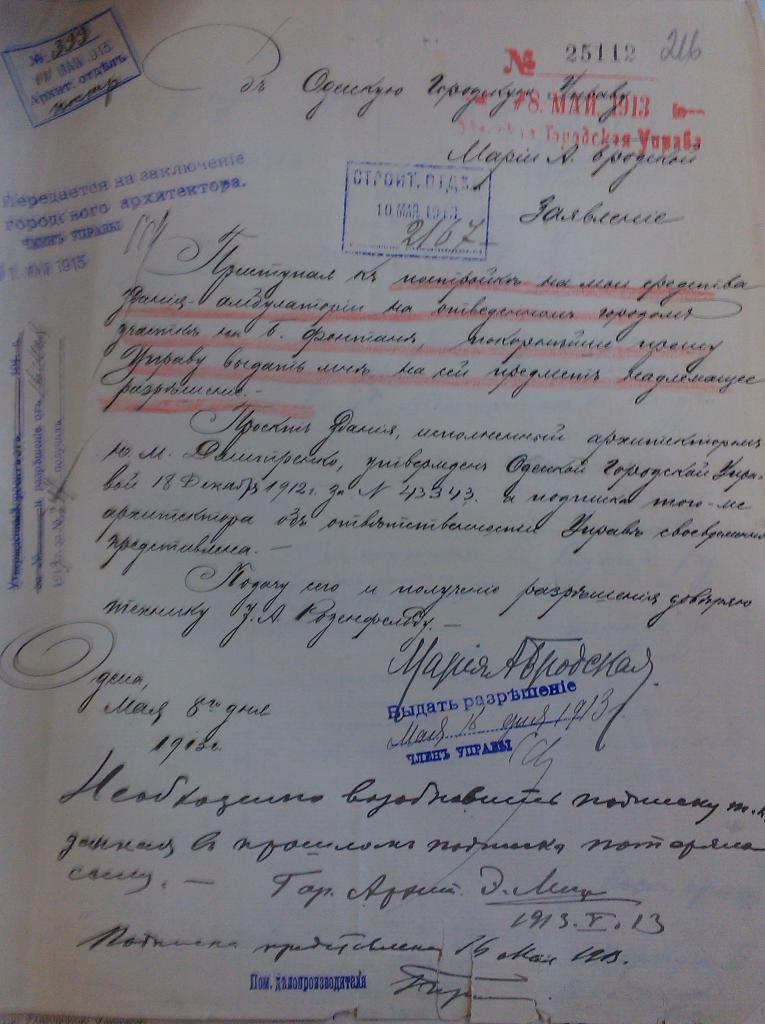 № 399
МАЙ 1913
Архит. отдѣлъ
№ 25112
216
Въ Одесскую Городскую Управу
*8. МАЙ. 1913
Одесская Городская Управа
Маріи А. Бродской
Передается на заключеніе
городского архитектора.
ЧЛЕНЪ УПРАВЫ
МАЙ 1913
СТРОИТ. ОТДѢЛ.
10 МАЯ 1913
2167
Заявленіе
Приступая къ постройкѣ на мои средства
зданія амбулаторіи на отведенномъ городомъ
участкѣ на Б. Фонтанѣ, покорнѣйше прошу
Управу выдать мнѣ на сей предметъ надлежащее
разрѣшеніе.-
Проектъ зданія, исполненный архитекторомъ
Ю. М. Дмитренко, утвержденъ Одесской Городской Упра-
вой 18 Декабря 1912г. за N 43343. и подписка того-же
архитектора объ отвѣтственности Управѣ своевременно
представлена.-
Подачу сего и полученіе разрѣшенія довѣряю
технику У. А. Розенфельду.-
Утвержденный проектъ отъ 191 г.
за № и разрѣшеніе отъ
1913г. за № получилъ
Марія А Бродская.
Одесса,
Мая 8го дня
1913г.
Выдать разрѣшеніе
Мая 16 дня 1913
ЧЛЕНЪ УПРАВЫ
Необходимо возобновить подписку т.к.
данная въ прошломъ подписка потеряла
силу.- Гор. Архит.
1913.V.13
Подписка представлена 16 Мая 1913.
Пом. дѣлопроизводителя